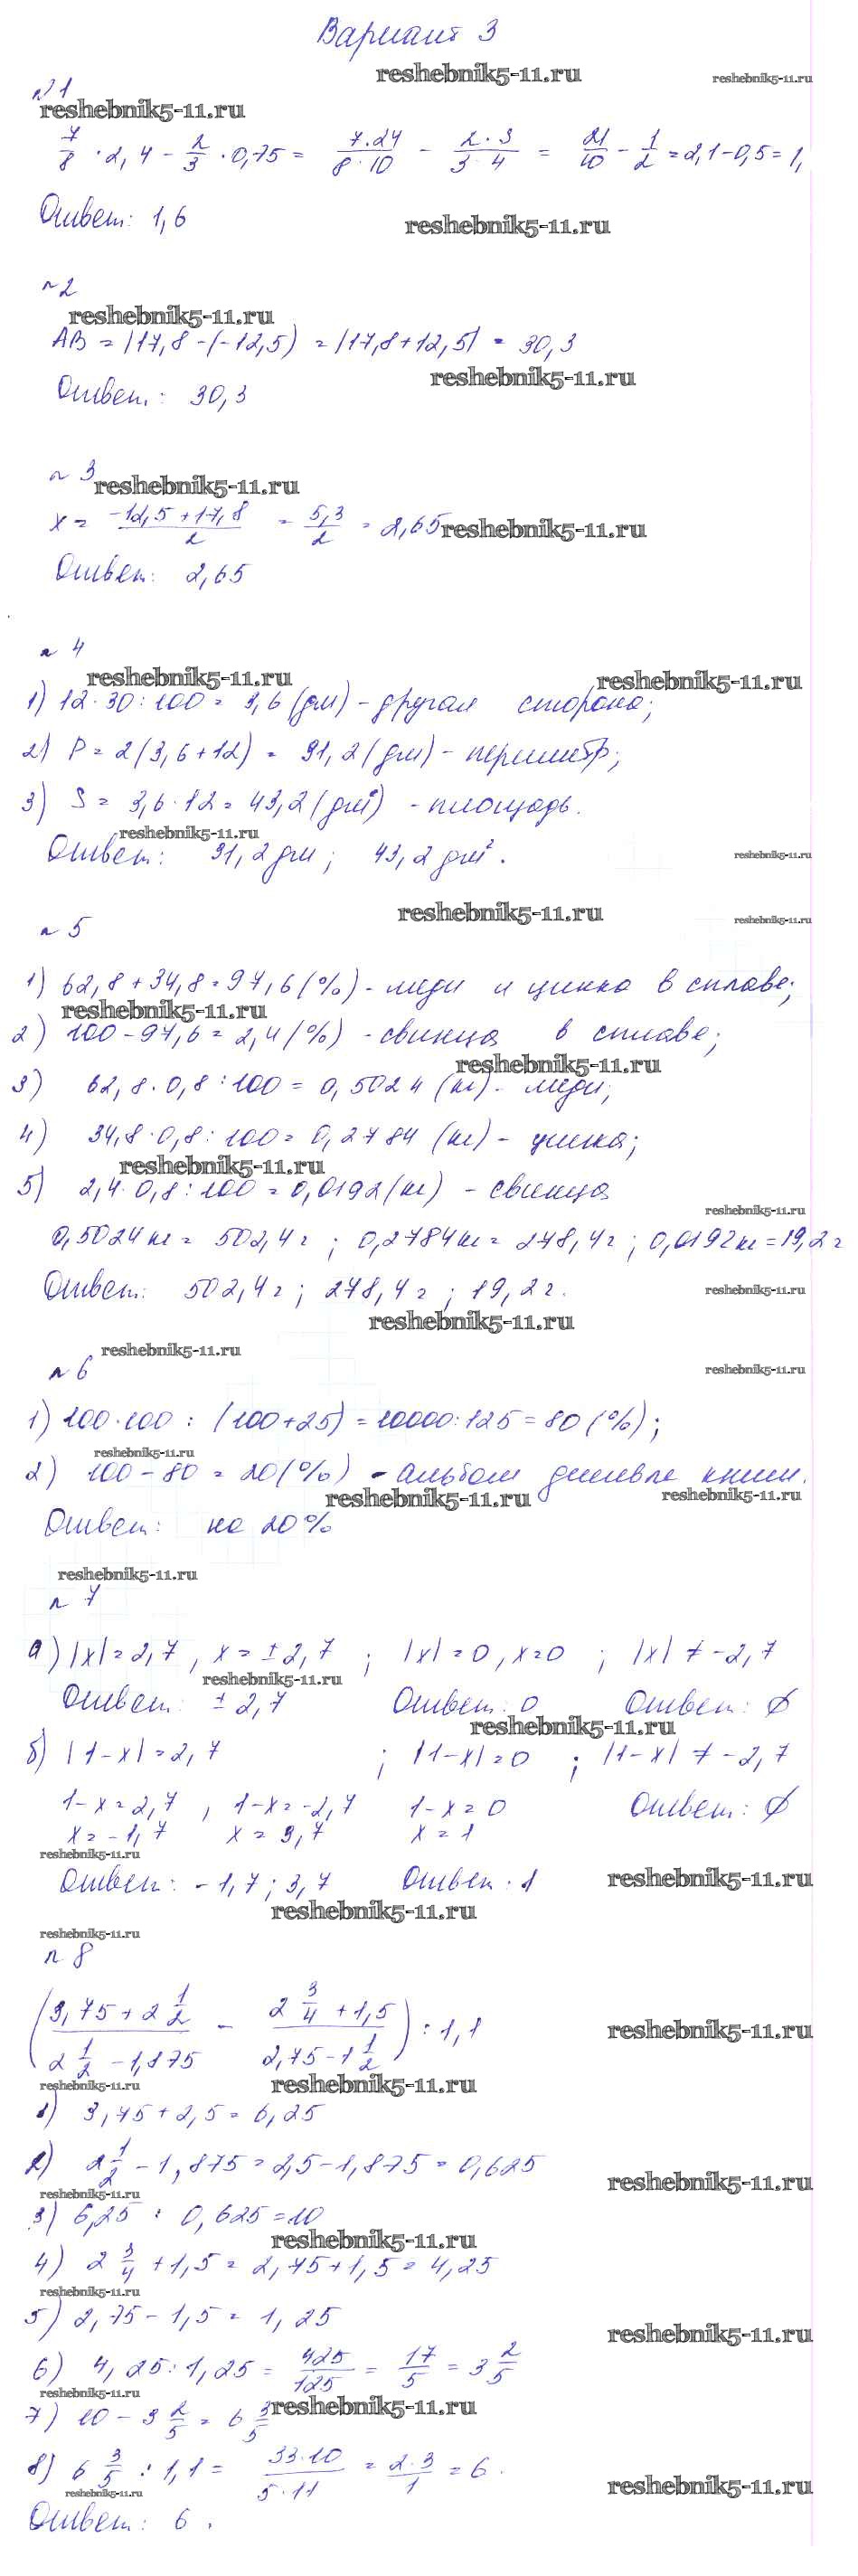 Вариант 3
reshebnik5-11.ru reshebnik5-11.ru
№1
reshebnik5-11.ru
7/8 · 2,4 - 2/3 · 0,75 = 7·24/8·10 - 2·3/3·4 = 21/10 - 1/2 = 2,1-0,5=1,
Ответ: 1,6
reshebnik5-11.ru
№2
reshebnik5-11.ru
AB = |17,8-(-12,5) = |17,8+12,5| = 30,3
reshebnik5-11.ru
Ответ: 30,3
№3
reshebnik5-11.ru
x = -12,5+17,8/2 = 5,3/2 = 2,65
reshebnik5-11.ru
Ответ: 2,65
№4
reshebnik5-11.ru reshebnik5-11.ru
1) 12·30:100 = 3,6 (дм) - другая сторона;
2) P = 2(3,6+12) = 31,2 (дм) - периметр;
3) S = 3,6·12 = 43,2 (дм²) - площадь.
reshebnik5-11.ru
Ответ: 31,2 дм; 43,2 дм².
reshebnik5-11.ru
reshebnik5-11.ru reshebnik5-11.ru
№5
1) 62,8+34,8=97,6(%) - меди и цинка в сплаве;
reshebnik5-11.ru
2) 100-97,6=2,4(%) - свинца в сплаве;
reshebnik5-11.ru
3) 62,8·0,8:100 = 0,5024 (кг) - меди;
4) 34,8·0,8:100 = 0,2784 (кг) - цинка;
reshebnik5-11.ru
5) 2,4·0,8:100 = 0,0192 (кг) - свинца
reshebnik5-11.ru
0,5024 кг = 502,4 г; 0,2784 кг = 278,4 г; 0,0192 кг = 19,2 г
Ответ: 502,4 г; 278,4 г; 19,2 г.
reshebnik5-11.ru
reshebnik5-11.ru
reshebnik5-11.ru
№6
reshebnik5-11.ru
1) 100·100 : (100+25) = 10000:125 = 80 (%);
reshebnik5-11.ru
2) 100-80 = 20(%) - альбом дешевле книги.
reshebnik5-11.ru reshebnik5-11.ru
Ответ: на 20%
reshebnik5-11.ru
№7
а) |x|=2,7, x=±2,7; |x|=0, x=0; |x| ≠ -2,7
reshebnik5-11.ru
Ответ: ±2,7 Ответ: 0 Ответ: ∅
reshebnik5-11.ru
б) |1-x|=2,7; |1-x|=0; |1-x| ≠ -2,7
1-x=2,7, 1-x=-2,7 1-x=0 Ответ: ∅
x=-1,7 x=3,7 x=1
reshebnik5-11.ru
Ответ: -1,7; 3,7 Ответ: 1
reshebnik5-11.ru
reshebnik5-11.ru
reshebnik5-11.ru
№8
(3,75+2 1/2 / 2 1/2 -1,875 - 2 3/4 +1,5 / 2,75-1 1/2) : 1,1
reshebnik5-11.ru
reshebnik5-11.ru reshebnik5-11.ru
1) 3,75+2,5=6,25
2) 2 1/2 -1,875=2,5-1,875=0,625
reshebnik5-11.ru
reshebnik5-11.ru
3) 6,25 : 0,625=10
reshebnik5-11.ru
4) 2 3/4 +1,5=2,75+1,5=4,25
reshebnik5-11.ru
5) 2,75-1,5=1,25
reshebnik5-11.ru
6) 4,25:1,25 = 425/125 = 17/5 = 3 2/5
reshebnik5-11.ru
7) 10-3 2/5 = 6 3/5
reshebnik5-11.ru
8) 6 3/5 : 1,1 = 33·10/5·11 = 2·3/1 = 6.
reshebnik5-11.ru reshebnik5-11.ru
Ответ: 6.